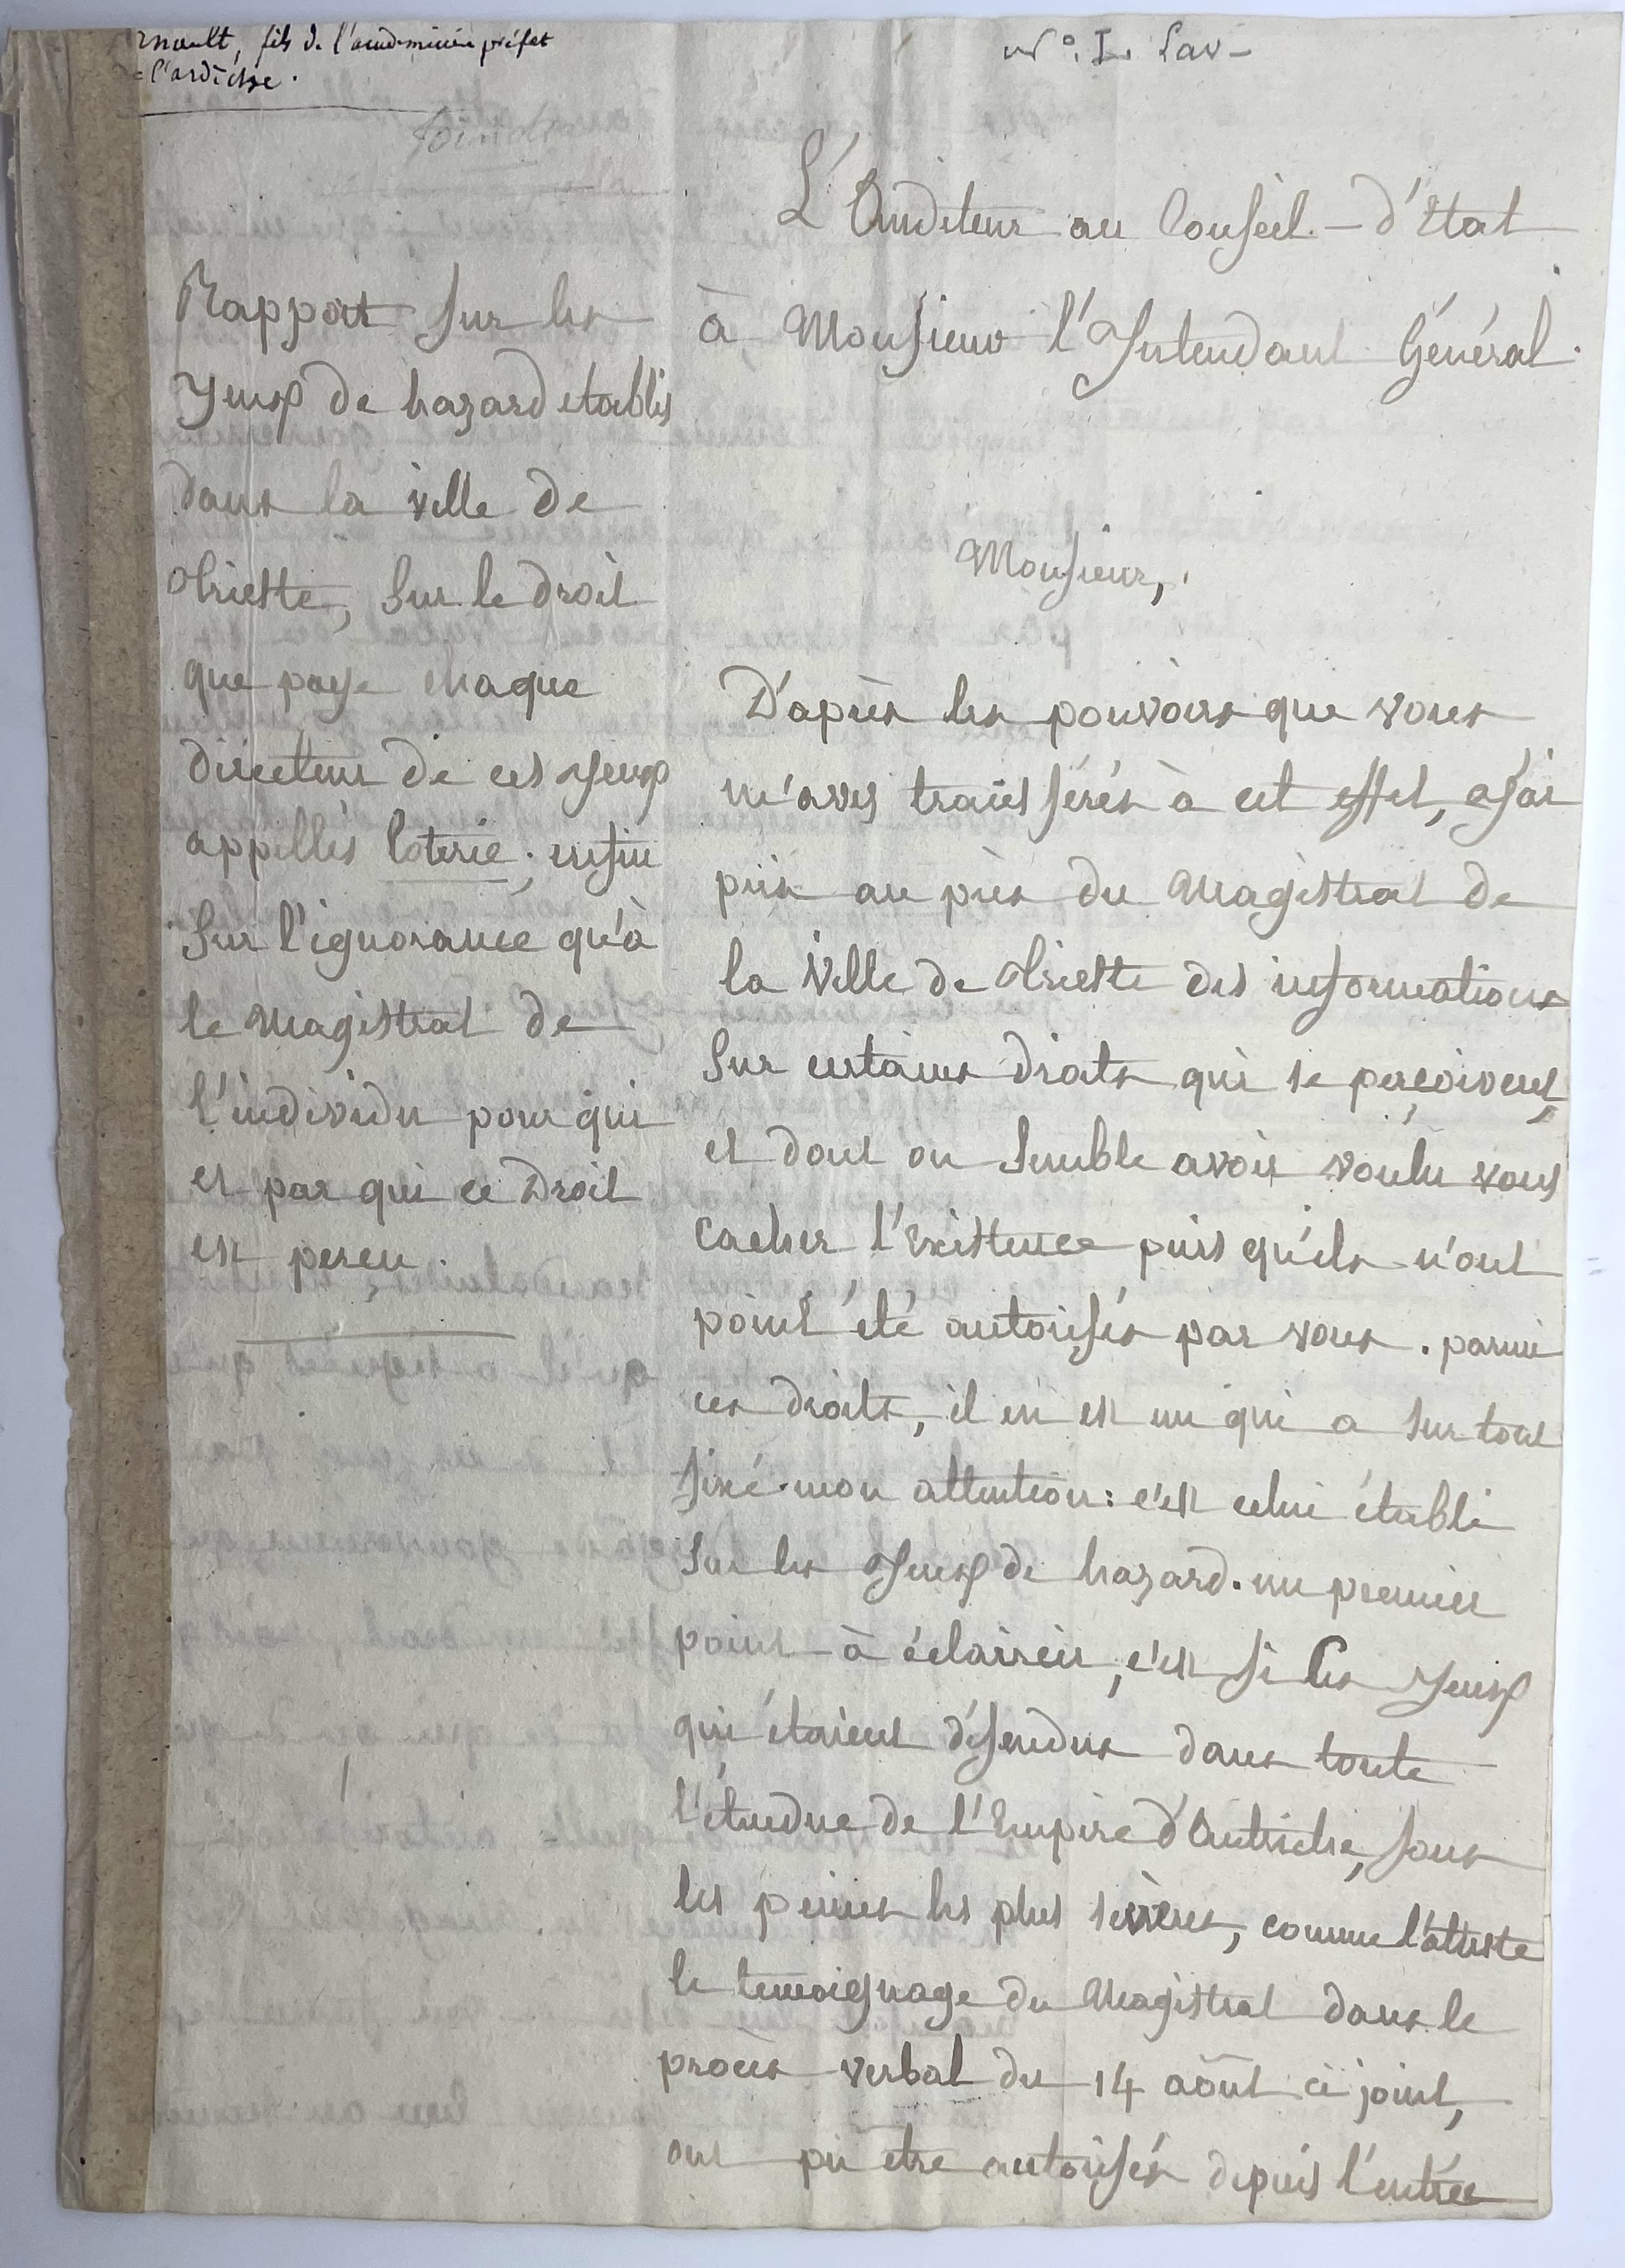 rnault, fils de l'académicien préfet
de l'ardèche.
N°. I. Lav-
Joindre
L'Auditeur au Conseil-d'Etat
à Monsieur l'Intendant Général.
Rapport sur les
Jeux de hazard etablis
dans la ville de
Trieste, sur le droit
que paye chaque
directeur de ces Jeux
appellés loterie; enfin
sur l'ignorance qu'à
le Magistrat de
l'individu pour qui
et par qui ce Droit
est perçu.
Monsieur,
D'après les pouvoirs que vous
m'avés transférés à cet effet, J'ai
pris au près du Magistrat de
la Ville de Trieste des informations
sur certains droits qui se perçoivent,
et dont on semble avoir voulu vous
cacher l'Existence puis qu'ils n'ont
point été autorisés par vous. parmi
ces droits, il en est un qui a sur tout
fixé mon attention: c'est celui établi
sur les Jeux de hazard. un premier
point à éclaircir, c'est si les Jeux
qui étaient défendus dans toute
l'étendue de l'Empire d'Autriche, sous
les peines les plus sévères, comme l'atteste
le temoignage du Magistrat dans le
procès verbal du 14 août ci joint,
ont pu etre autorisés depuis l'entrée